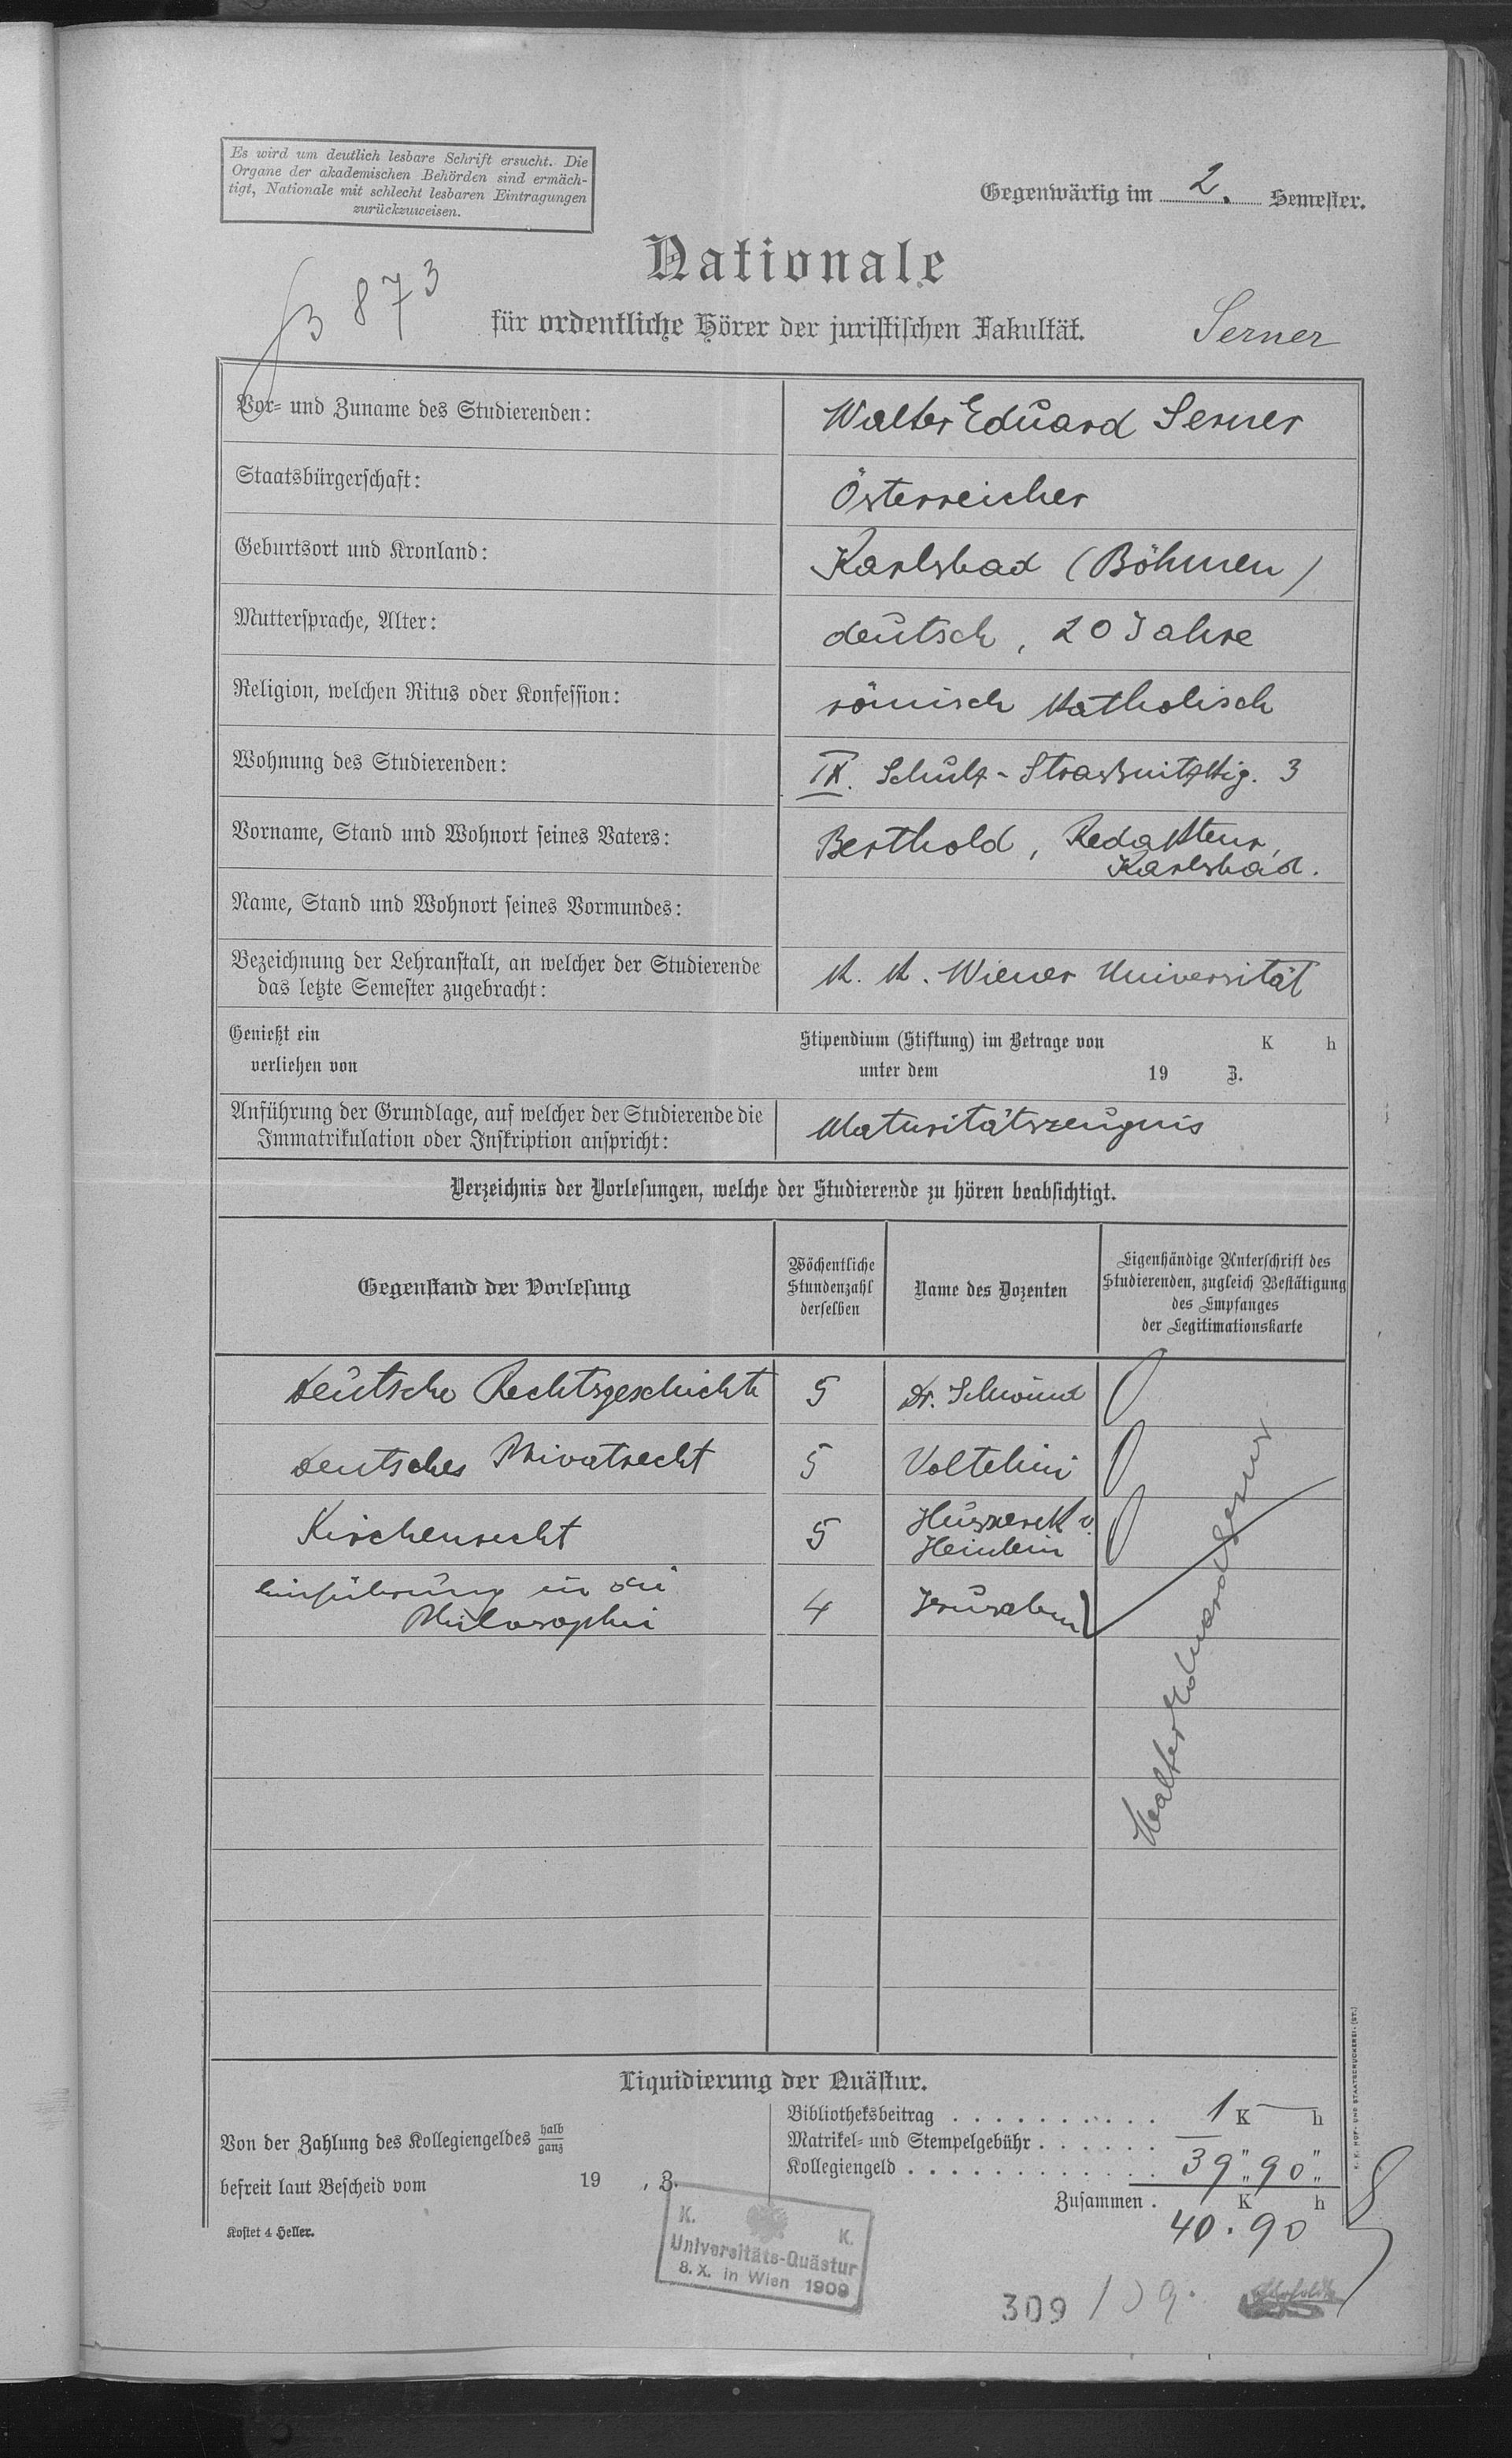 Es wird um deutlich lesbare Schrift ersucht. Die
Organe der akademischen Behörden sind ermäch-
tigt, Nationale mit schlecht lesbaren Eintragungen
zurückzuweisen.
Gegenwärtig im 2. Semester.
Nationale
873
für ordentliche Hörer der juristischen Fakultät.
Serner
Vor- und Zuname des Studierenden: Walter Eduard Serner
Staatsbürgerschaft: Österreicher
Geburtsort und Kronland: Karlsbad (Böhmen)
Muttersprache, Alter: deutsch, 20 Jahre
Religion, welchen Ritus oder Konfession: römisch katholisch
Wohnung des Studierenden: IX. Schulz-Strassnitzkig. 3
Vorname, Stand und Wohnort seines Vaters: Berthold, Redakteur,
Karlsbad.
Name, Stand und Wohnort seines Vormundes:
Bezeichnung der Lehranstalt, an welcher der Studierende
das letzte Semester zugebracht: K. K. Wiener Universität
Genießt ein Stipendium (Stiftung) im Betrage von K h
verliehen von unter dem 19 Z.
Anführung der Grundlage, auf welcher der Studierende die
Immatrikulation oder Inskription anspricht: Maturitätszeugnis
Verzeichnis der Vorlesungen, welche der Studierende zu hören beabsichtigt.
Gegenstand der Vorlesung
Wöchentliche
Stundenzahl
derselben
Name des Dozenten
Eigenhändige Unterschrift des
Studierenden, zugleich Bestätigung
des Empfanges
der Legitimationskarte
Deutsche Rechtsgeschichte 5 Dr. Schwind
Deutsches Privatrecht 5 Voltelini
Kirchenrecht 5 Hussarek v.
Heinlein
Einführung in die
Philosophie 4 Jerusalem
Walter Eduard Serner
Liquidierung der Quästur.
Von der Zahlung des Kollegiengeldes halb
ganz
befreit laut Bescheid vom 19 , Z.
Kostet 4 Heller.
Bibliotheksbeitrag . . . . . . . . . . 1 K — h
Matrikel- und Stempelgebühr . . . . . . — " "
Kollegiengeld . . . . . . . . . . . . 39 " 90 "
Zusammen . K h
40 . 90
K. K.
Universitäts-Quästur
8. X. in Wien 1909
309
K. K. HOF- UND STAATSDRUCKEREI. (ST.)